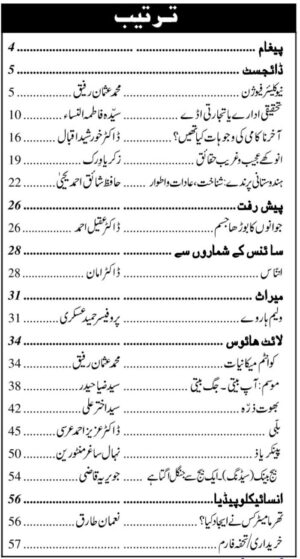 ترتیب
پیغام ........ 4
ڈائجسٹ ........ 5
نیوکلیئر فیوژن ........ محمد عثمان رفیق ........ 5
تحقیقی ادارے یا تجارتی اڈے ........ سیدہ فاطمہ النساء ........ 10
آخر ناکامی کی وجوہات کیا تھیں؟ ........ ڈاکٹر خورشید اقبال ........ 16
انوکھے عجیب و غریب حقائق ........ زکریا ورک ........ 19
ہندوستانی پرندے: شناخت، عادات و اطوار ........ حافظ شائق احمد یحییٰ ........ 22
پیش رفت ........ 26
جوانوں کا بوڑھا جسم ........ ڈاکٹر عقیل احمد ........ 26
سائنس کے شماروں سے ........ 28
انناس ........ ڈاکٹر امان ........ 28
میراث ........ 31
ولیم ہاروے ........ پروفیسر حمید عسکری ........ 31
لائٹ ہاؤس ........ 34
کوانٹم میکانیات ........ محمد عثمان رفیق ........ 34
موسم: آپ بیتی۔ جگ بیتی ........ سید ضیا حیدر ........ 38
بھوت ذرّہ ........ سید اختر علی ........ 42
بلّی ........ ڈاکٹر عزیز احمد عرسی ........ 45
پینکریاز ........ نہال ساغر منثورین ........ 50
بیج بینک (سیڈنگ)۔ ایک بیج سے جنگل اگتا ہے ........ جویریہ قاضی ........ 54
انسائیکلوپیڈیا ........ 56
تھرمامیٹر کس نے ایجاد کیا؟ ........ نعمان طارق ........ 56
خریداری/تحفہ فارم ........ 57